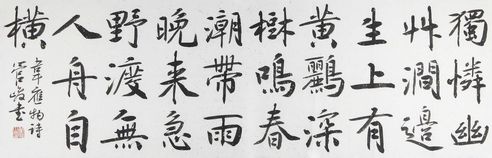 獨憐幽
艸澗邊
生上有
黄鸝深
樹鳴春
潮帶雨
晚来急
野渡無
人舟自
横
韋應物詩
管峻书